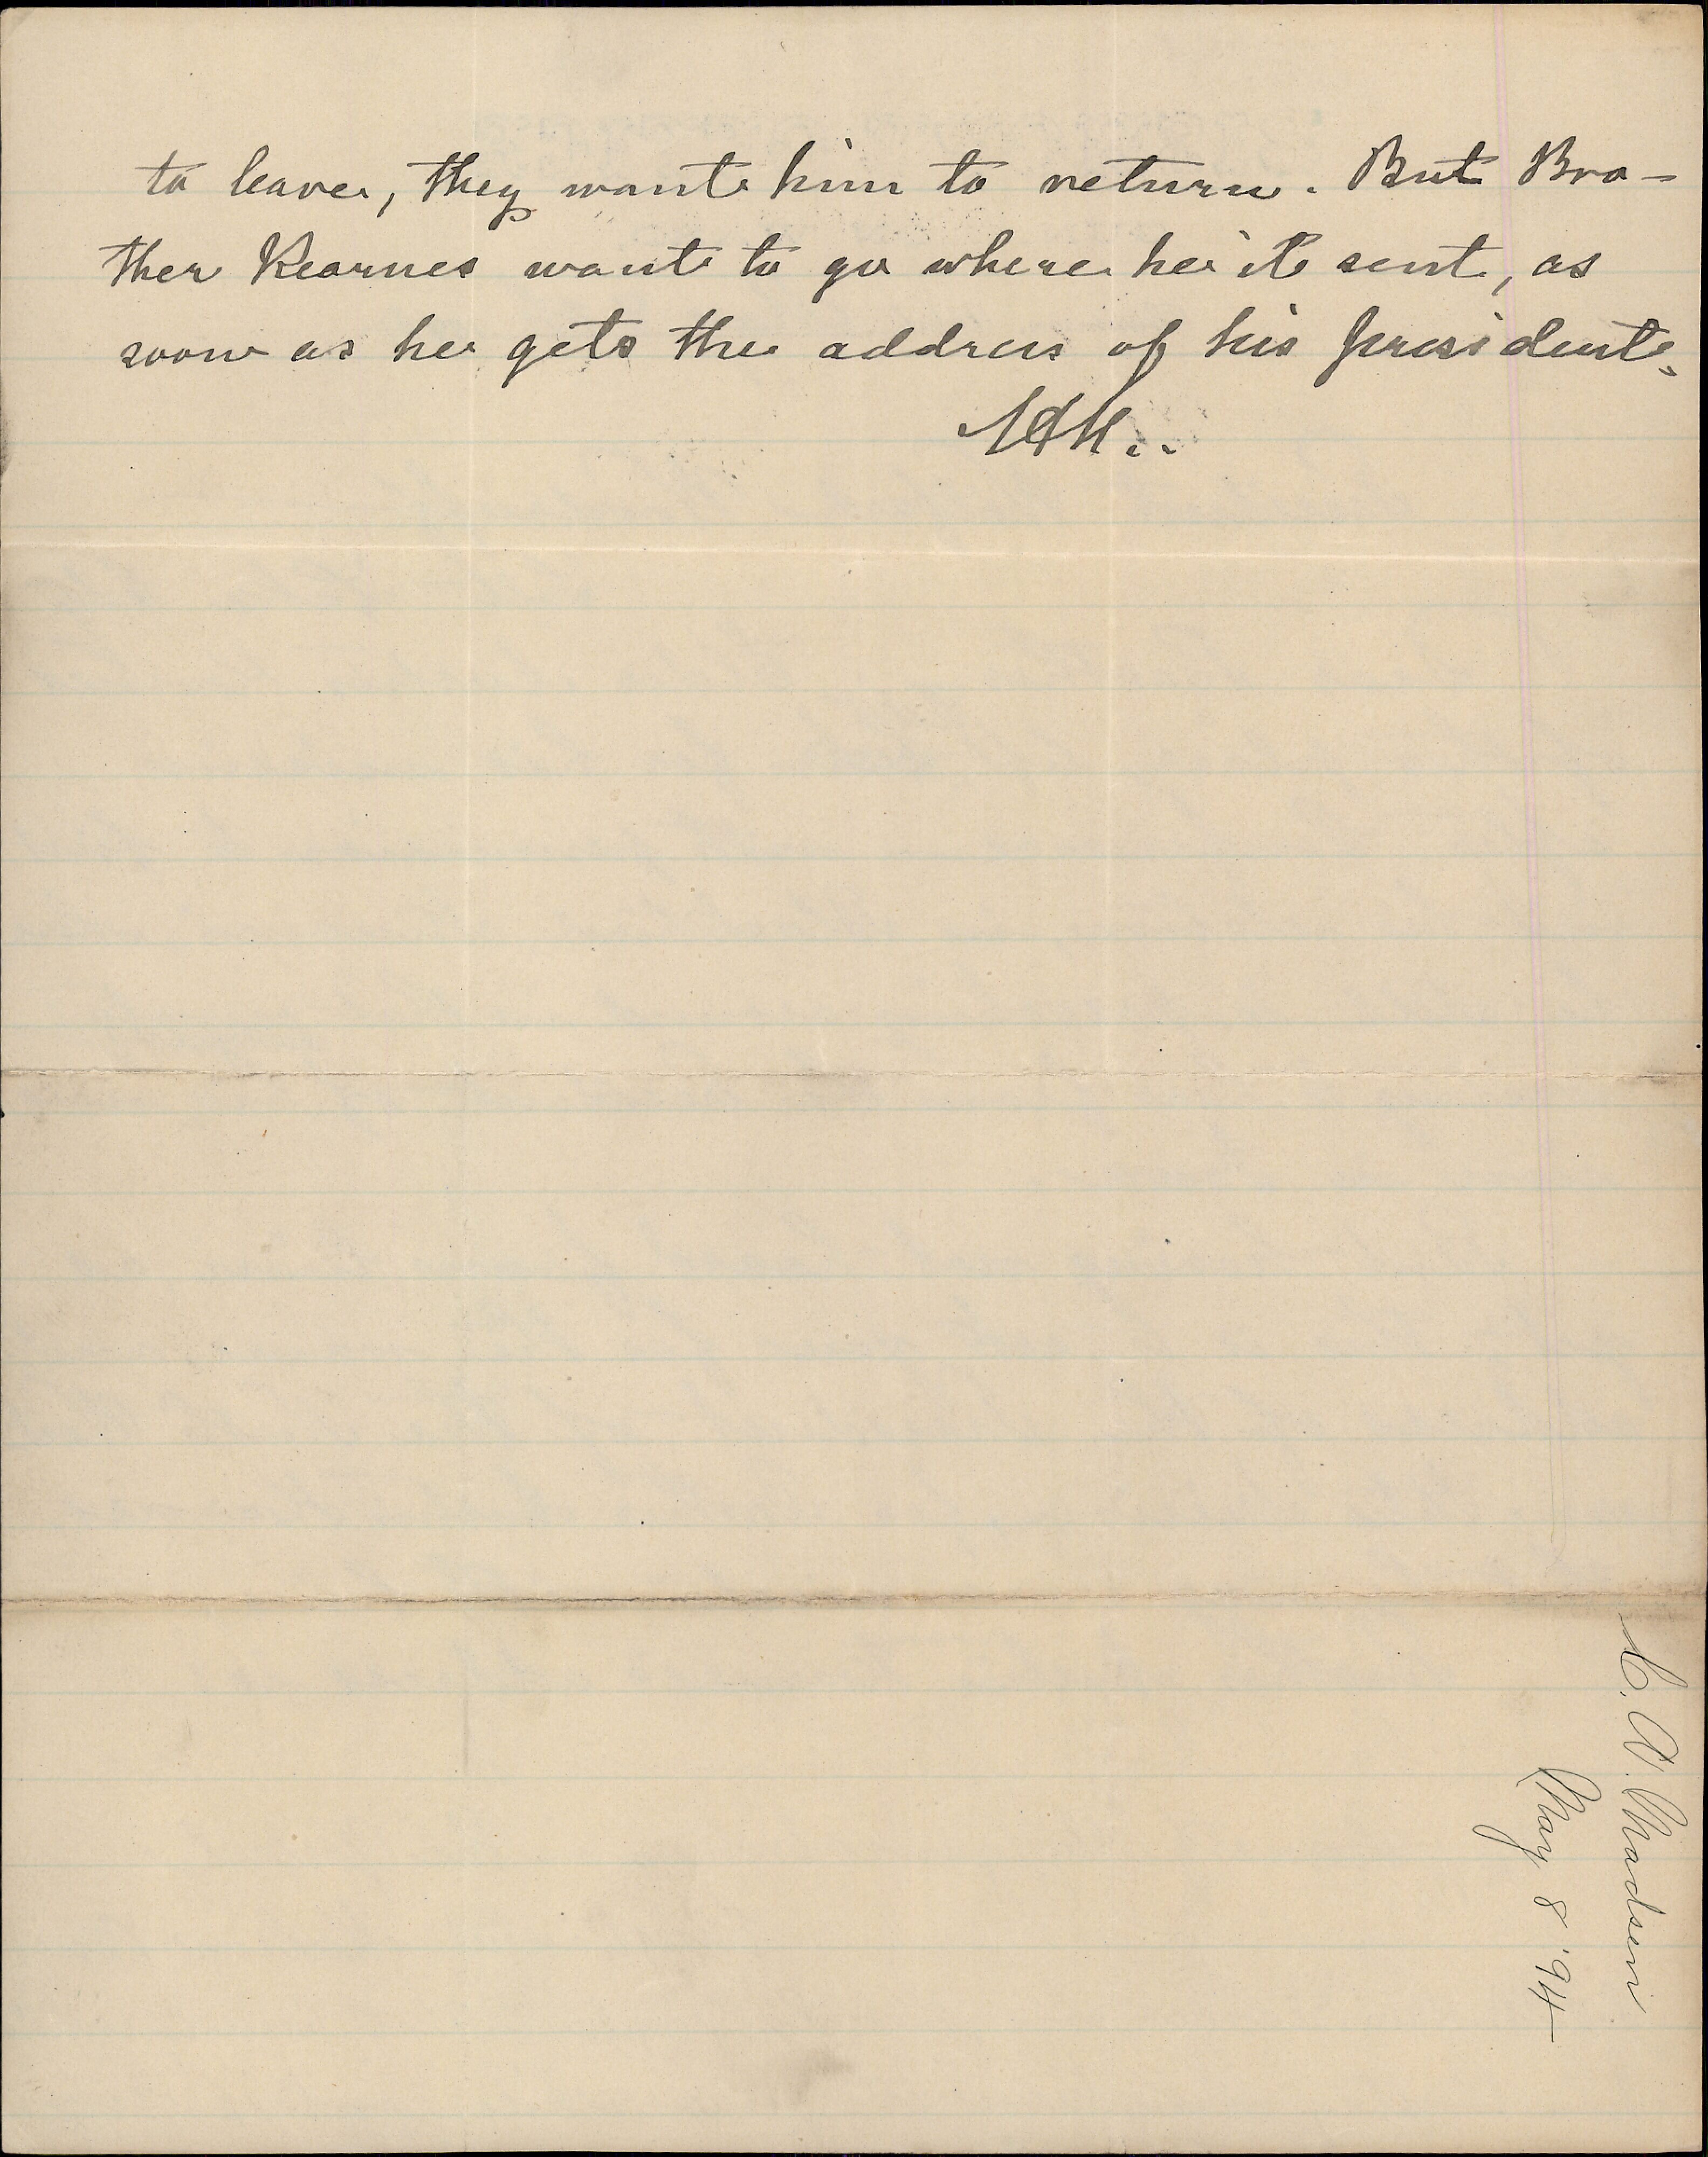 to leave, they want him to return. But Bro-
ther Kearnes want to go where he is sent, as
soon as he gets the address of his president.
C. A. Madsen
May 8 '94